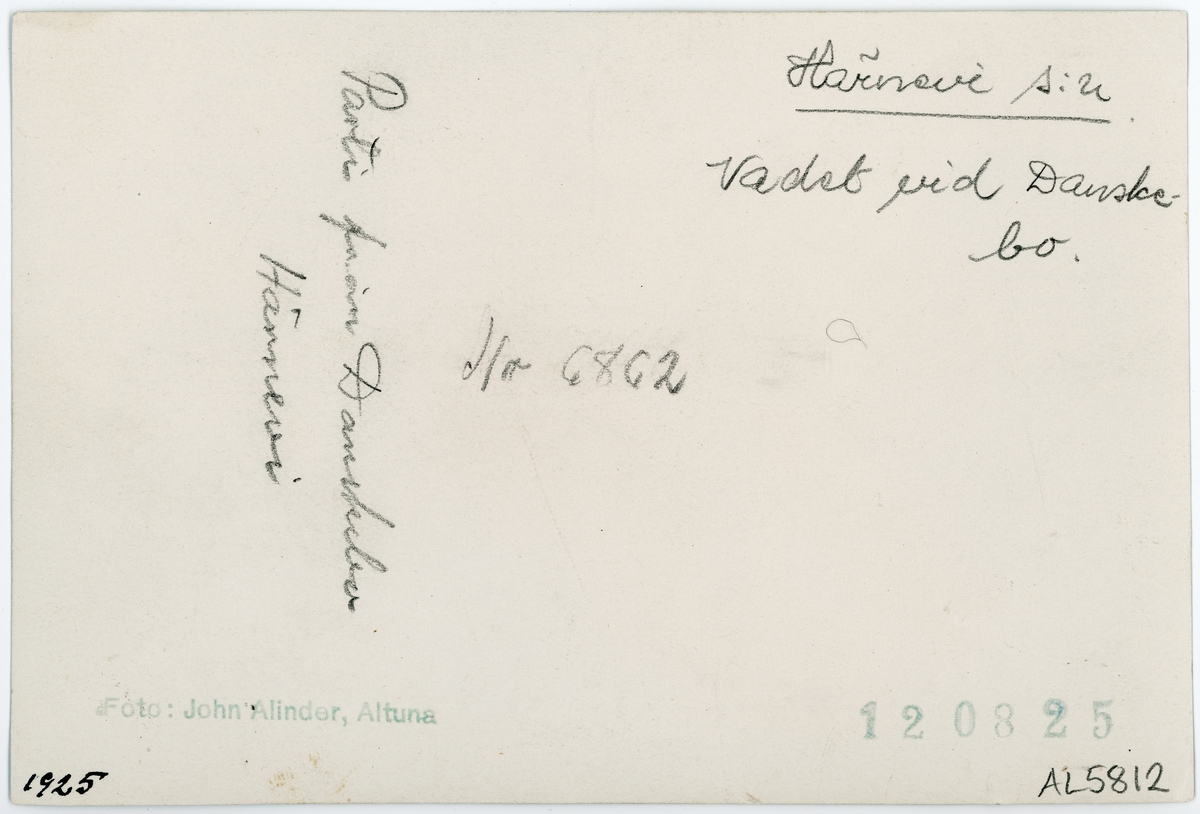 Härnevi s:n
Vadet vid Danske-
bo.
Parti från Danskebo
Härnevi
Nr 6862
Foto: John Alinder, Altuna
120825
1925
AL5812